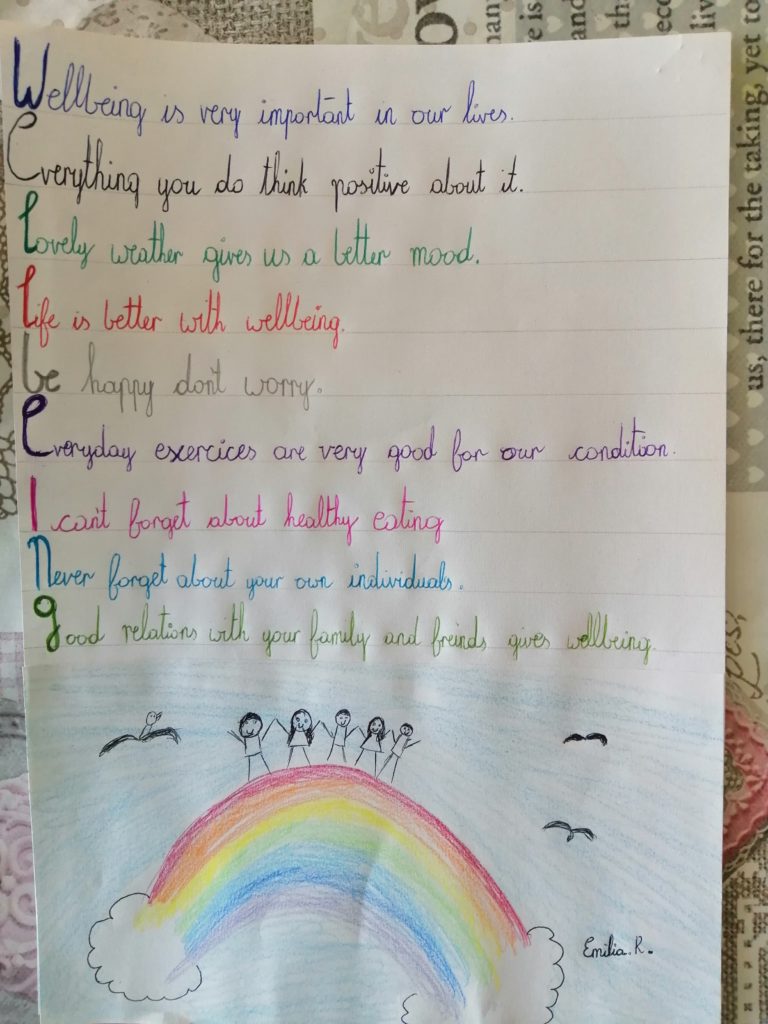 Wellbeing is very important in our lives.
Everything you do think positive about it.
Lovely weather gives us a better mood.
Life is better with wellbeing.
be happy don't worry.
Everyday excercices are very good for our condition.
I can't forget about healthy eating
Never forget about your own individuals.
good relations with your family and freinds gives wellbeing.
Emilia.R.
us, there for the taking, yet to